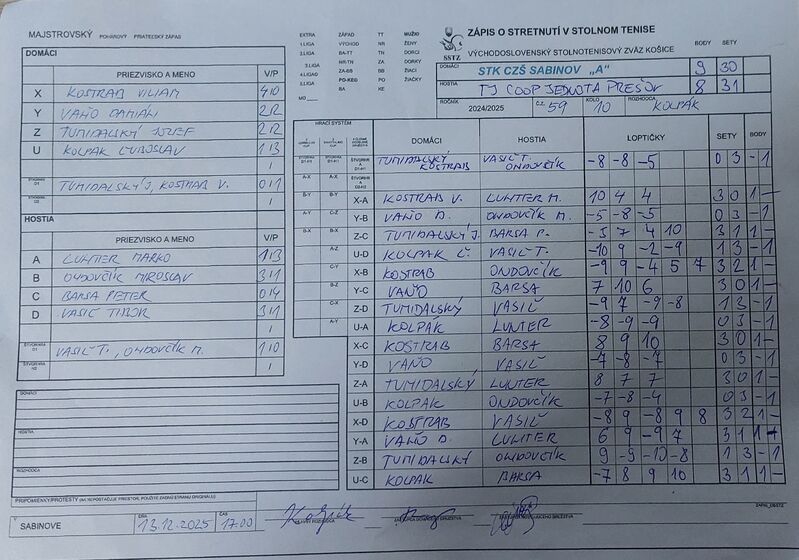 MAJSTROVSKÝ POHÁROVÝ PRIATEĽSKÝ ZÁPAS
EXTRA ZÁPAD TT MUŽI
I.LIGA VÝCHOD NR ŽENY
II.LIGA BA-TT TN DORCI
3.LIGA NR-TN ZA DORKI
4.LIGA ZA-BB BB ŽIACI
5.LIGA PO-KE PO ŽIAČKY
MO BA KE
SSTZ
ZÁPIS O STRETNUTÍ V STOLNOM TENISE
VÝCHODOSLOVENSKÝ STOLNOTENISOVÝ ZVÄZ KOŠICE
BODY SETY
DOMÁCI STK CZŠ SABINOV „A" 9 30
HOSTIA TJ COOP JEDNOTA PREŠOV 8 31
ROČNÍK 2024/2025 Č.Z. 59 KOLO 10 ROZHODCA KOLPÁK
DOMÁCI
PRIEZVISKO A MENO V/P
X KOSTRAB VILIAM 4/0
Y VAŇO DAMIÁN 2/2
Z TUMIDALSKÝ JOZEF 2/2
U KOLPÁK ĽUBOSLAV 1/3
ŠTVORHRA D1 TUMIDALSKÝ J., KOSTRAB V. 0/1
HOSTIA
PRIEZVISKO A MENO V/P
A LUNTER MARKO 1/3
B ONDOVČÍK MIROSLAV 3/1
C BARSA PETER 0/4
D VASIĽ TIBOR 3/1
ŠTVORHRA VASIĽ T., ONDOVČÍK M. 1/0
HRACÍ SYSTÉM DOMÁCI HOSTIA LOPTIČKY SETY BODY
ŠTVORHRA TUMIDALSKÝ KOSTRAB VASIĽ T. ONDOVČÍK -8 -8 -5 0 3 - 1
X-A KOSTRAB V. LUNTER M. 10 4 4 3 0 1 -
Y-B VAŇO D. ONDOVČÍK M. -5 -8 -5 0 3 - 1
Z-C TUMIDALSKÝ J. BARSA P. -3 7 4 10 3 1 1 -
U-D KOLPÁK Ľ. VASIĽ T. -10 9 -2 -9 1 3 - 1
X-B KOSTRAB ONDOVČÍK -9 9 -4 5 7 3 2 1 -
Y-C VAŇO BARSA 7 10 6 3 0 1 -
Z-D TUMIDALSKÝ VASIĽ -9 7 -9 -8 1 3 - 1
U-A KOLPÁK LUNTER -8 -9 -9 0 3 - 1
X-C KOSTRAB BARSA 8 9 10 3 0 1 -
Y-D VAŇO VASIĽ -7 -8 -7 0 3 - 1
Z-A TUMIDALSKÝ LUNTER 8 7 7 3 0 1 -
U-B KOLPÁK ONDOVČÍK -7 -8 -4 0 3 - 1
X-D KOSTRAB VASIĽ -8 9 -8 9 8 3 2 1 -
Y-A VAŇO D. LUNTER 6 9 -9 7 3 1 1 -
Z-B TUMIDALSKÝ ONDOVČÍK 9 -9 -10 -8 1 3 - 1
U-C KOLPÁK BARSA -7 8 9 10 3 1 1 -
DOMÁCI
HOSTIA
ROZHODCA
PRIPOMIENKY/PROTESTY (AK NEPOSTAČUJE PRIESTOR, POUŽITE ZADNÚ STRANU ORIGINÁLU)
V SABINOVE DŇA 13.12.2025 ČAS 17.00